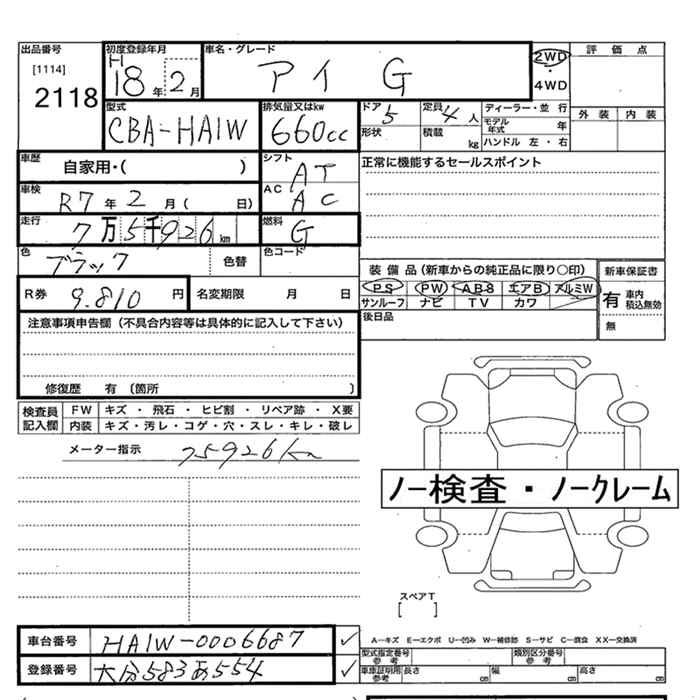 出品番号 初度登録年月 車名・グレード 評価点
[1114] H 2WD
2118 18年 2月 アイ G ・
4WD
型式 排気量又はkw ドア 定員 ディーラー・並行 外装 内装
CBA-HA1W 660cc 5 4人 モデル年式 年
形状 積載 kg ハンドル 左・右
車歴 自家用・( ) シフト AT 正常に機能するセールスポイント
車検 R7年 2月( 日) AC AC
走行 7万5千926km 燃料 G
色 ブラック 色替 色コード
装備品(新車からの純正品に限り○印) 新車保証書
R券 9.810円 名変期限 月 日 PS PW ABS エアB アルミW 有 車内積込無効
サンルーフ ナビ TV カワ 無
注意事項申告欄(不具合内容等は具体的に記入して下さい) 後日品
修復歴 有 〔箇所 〕
検査員記入欄 FW キズ・飛石・ヒビ割・リペア跡・X要
内装 キズ・汚レ・コゲ・穴・スレ・キレ・破レ
メーター指示 75926km
ノー検査・ノークレーム
スペアT
[ ]
A―キズ E―エクボ U―凹み W―補修跡 S―サビ C―腐食 XX―交換済
車台番号 HA1W-0006687 ✓ 型式指定番号 参考 類別区分番号 参考
登録番号 大分583あ554 ✓ 車車証明用 参考 長さ cm 幅 cm 高さ cm